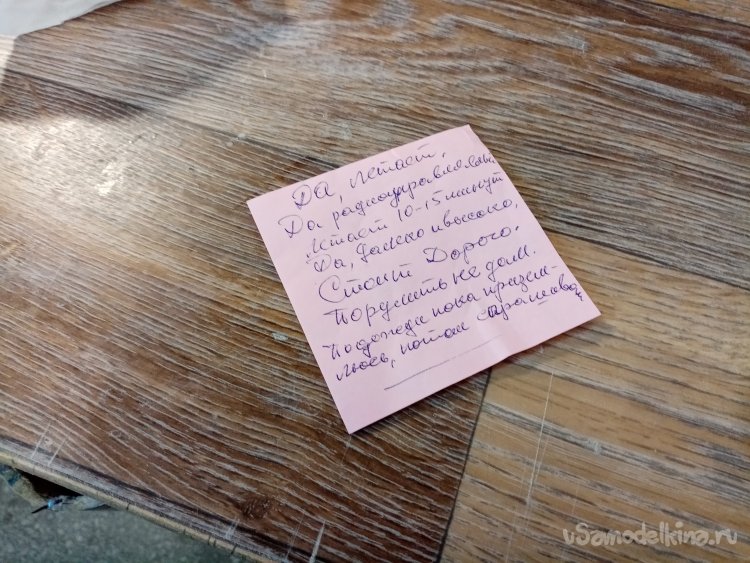 Да, летает.
Да радиоуправляемый.
Летает 10-15 минут
Да, далеко и высоко.
Стоит Дорого.
Порулить не дам.
Подожди пока призем-
люсь, потом спрашивай
vSamodelkina.ru